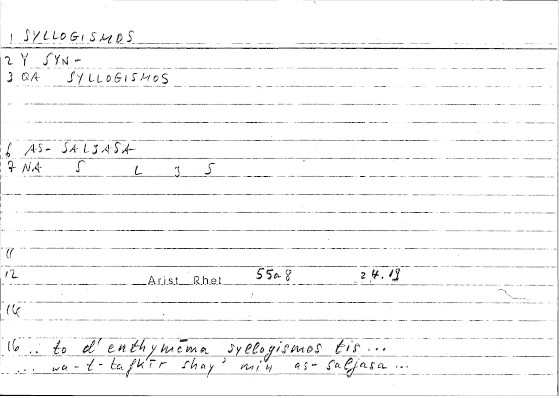 1 SYLLOGISMOS
2 Y SYN-
3 QA SYLLOGISMOS
6 AS- SALJASA
7 NA S L J S
11
12 Arist Rhet 55a8 24.19
14
16 .. to d' enthymēma syllogismos tis ...
... wa-t-tafkīr shay' min as-saljasa ...